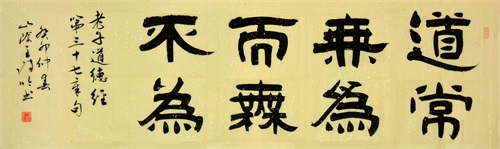 道常
無為
而無
不為
老子道德經
第三十七章句
癸卯仲春